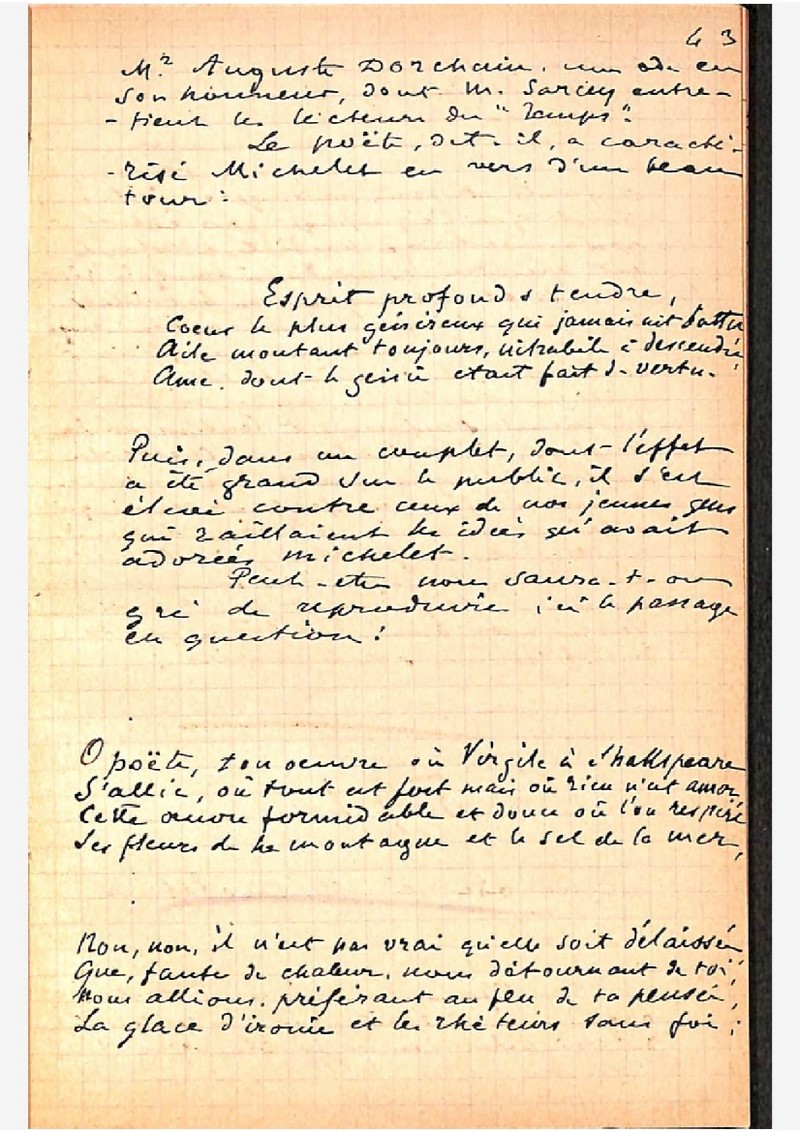 43
Mr Auguste Dorchain, une ode en
son honneur, dont M. Sarcey entre-
-tient les lecteurs du "Temps".
Le poëte, dit-il, a caracté-
-risé Michelet en vers d'un beau
tour:
Esprit profond & tendre,
Coeur le plus généreux qui jamais ait battu
Aile montant toujours, inhabile à descendre,
Ame, dont le génie etait fait de vertu.
Puis, dans un couplet, dont l'effet
a été grand sur le public, il s'est
élevé contre ceux de nos jeunes gens
qui raillaient les idées qu'avait
adorées Michelet.
Peut-etre nous saura-t-on
gré de reproduire ici le passage
en question:
O poëte, ton oeuvre où Virgile à Shakspeare
S'allie, où tout est fort mais où rien n'est amer,
Cette oeuvre formidable et douce où l'on respire
Les fleurs de la montagne et le sel de la mer,
Non, non, il n'est pas vrai qu'elle soit délaissée
Que, faute de chaleur, nous détournant de toi,
Nous allions, préférant au feu de ta pensée,
La glace d'ironie et les rhéteurs sans foi;